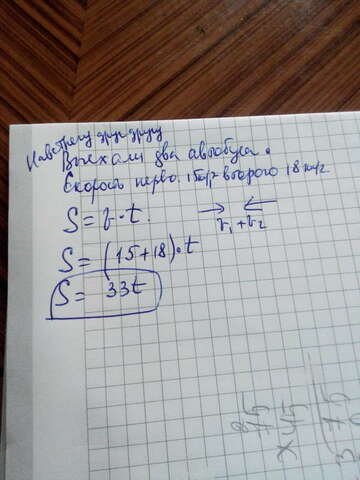 Навстречу друг другу
Выехали два автобуса.
Скорость перво 15км/г второго 18 км/г
S = v · t.
v₁ + v₂
S = (15+18) · t
S = 33t
75
x 45